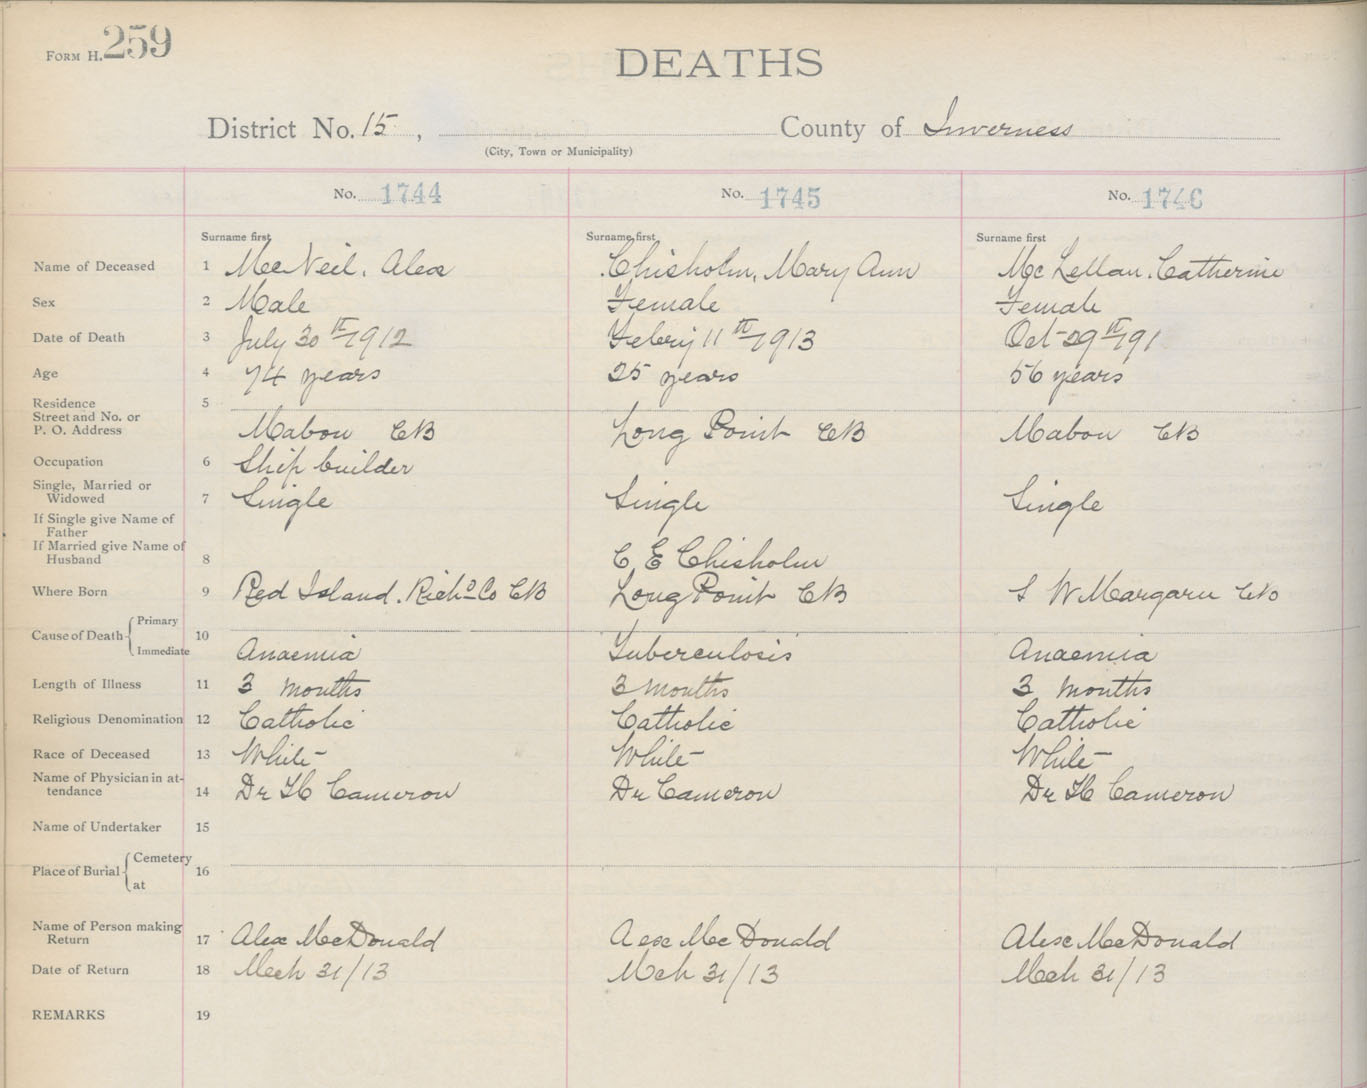 FORM H. 259
DEATHS
District No. 15 , County of Inverness
(City, Town or Municipality)
No. 1744 No. 1745 No. 1746
Surname first Surname first Surname first
Name of Deceased 1 MacNeil, Alex Chisholm, Mary Ann McLellan, Catherine
Sex 2 Male Female Female
Date of Death 3 July 30th 1912 Febry 11th 1913 Oct 29th 191
Age 4 74 years 25 years 56 years
Residence 5
Street and No. or
P. O. Address Mabou CB Long Point CB Mabou CB
Occupation 6 Ship builder
Single, Married or
Widowed 7 Single Single Single
If Single give Name of
Father
If Married give Name of
Husband 8 C E Chisholm
Where Born 9 Red Island. Richd Co CB Long Point CB S W Margaree CB
Cause of Death { Primary 10
Immediate Anaemia Tuberculosis Anaemia
Length of Illness 11 3 months 3 months 3 months
Religious Denomination 12 Catholic Catholic Catholic
Race of Deceased 13 White White White
Name of Physician in at-
tendance 14 Dr H Cameron Dr Cameron Dr H Cameron
Name of Undertaker 15
Place of Burial { Cemetery 16
at
Name of Person making
Return 17 Alex MacDonald Alex McDonald Alex McDonald
Date of Return 18 Mch 31/13 Mch 31/13 Mch 31/13
REMARKS 19